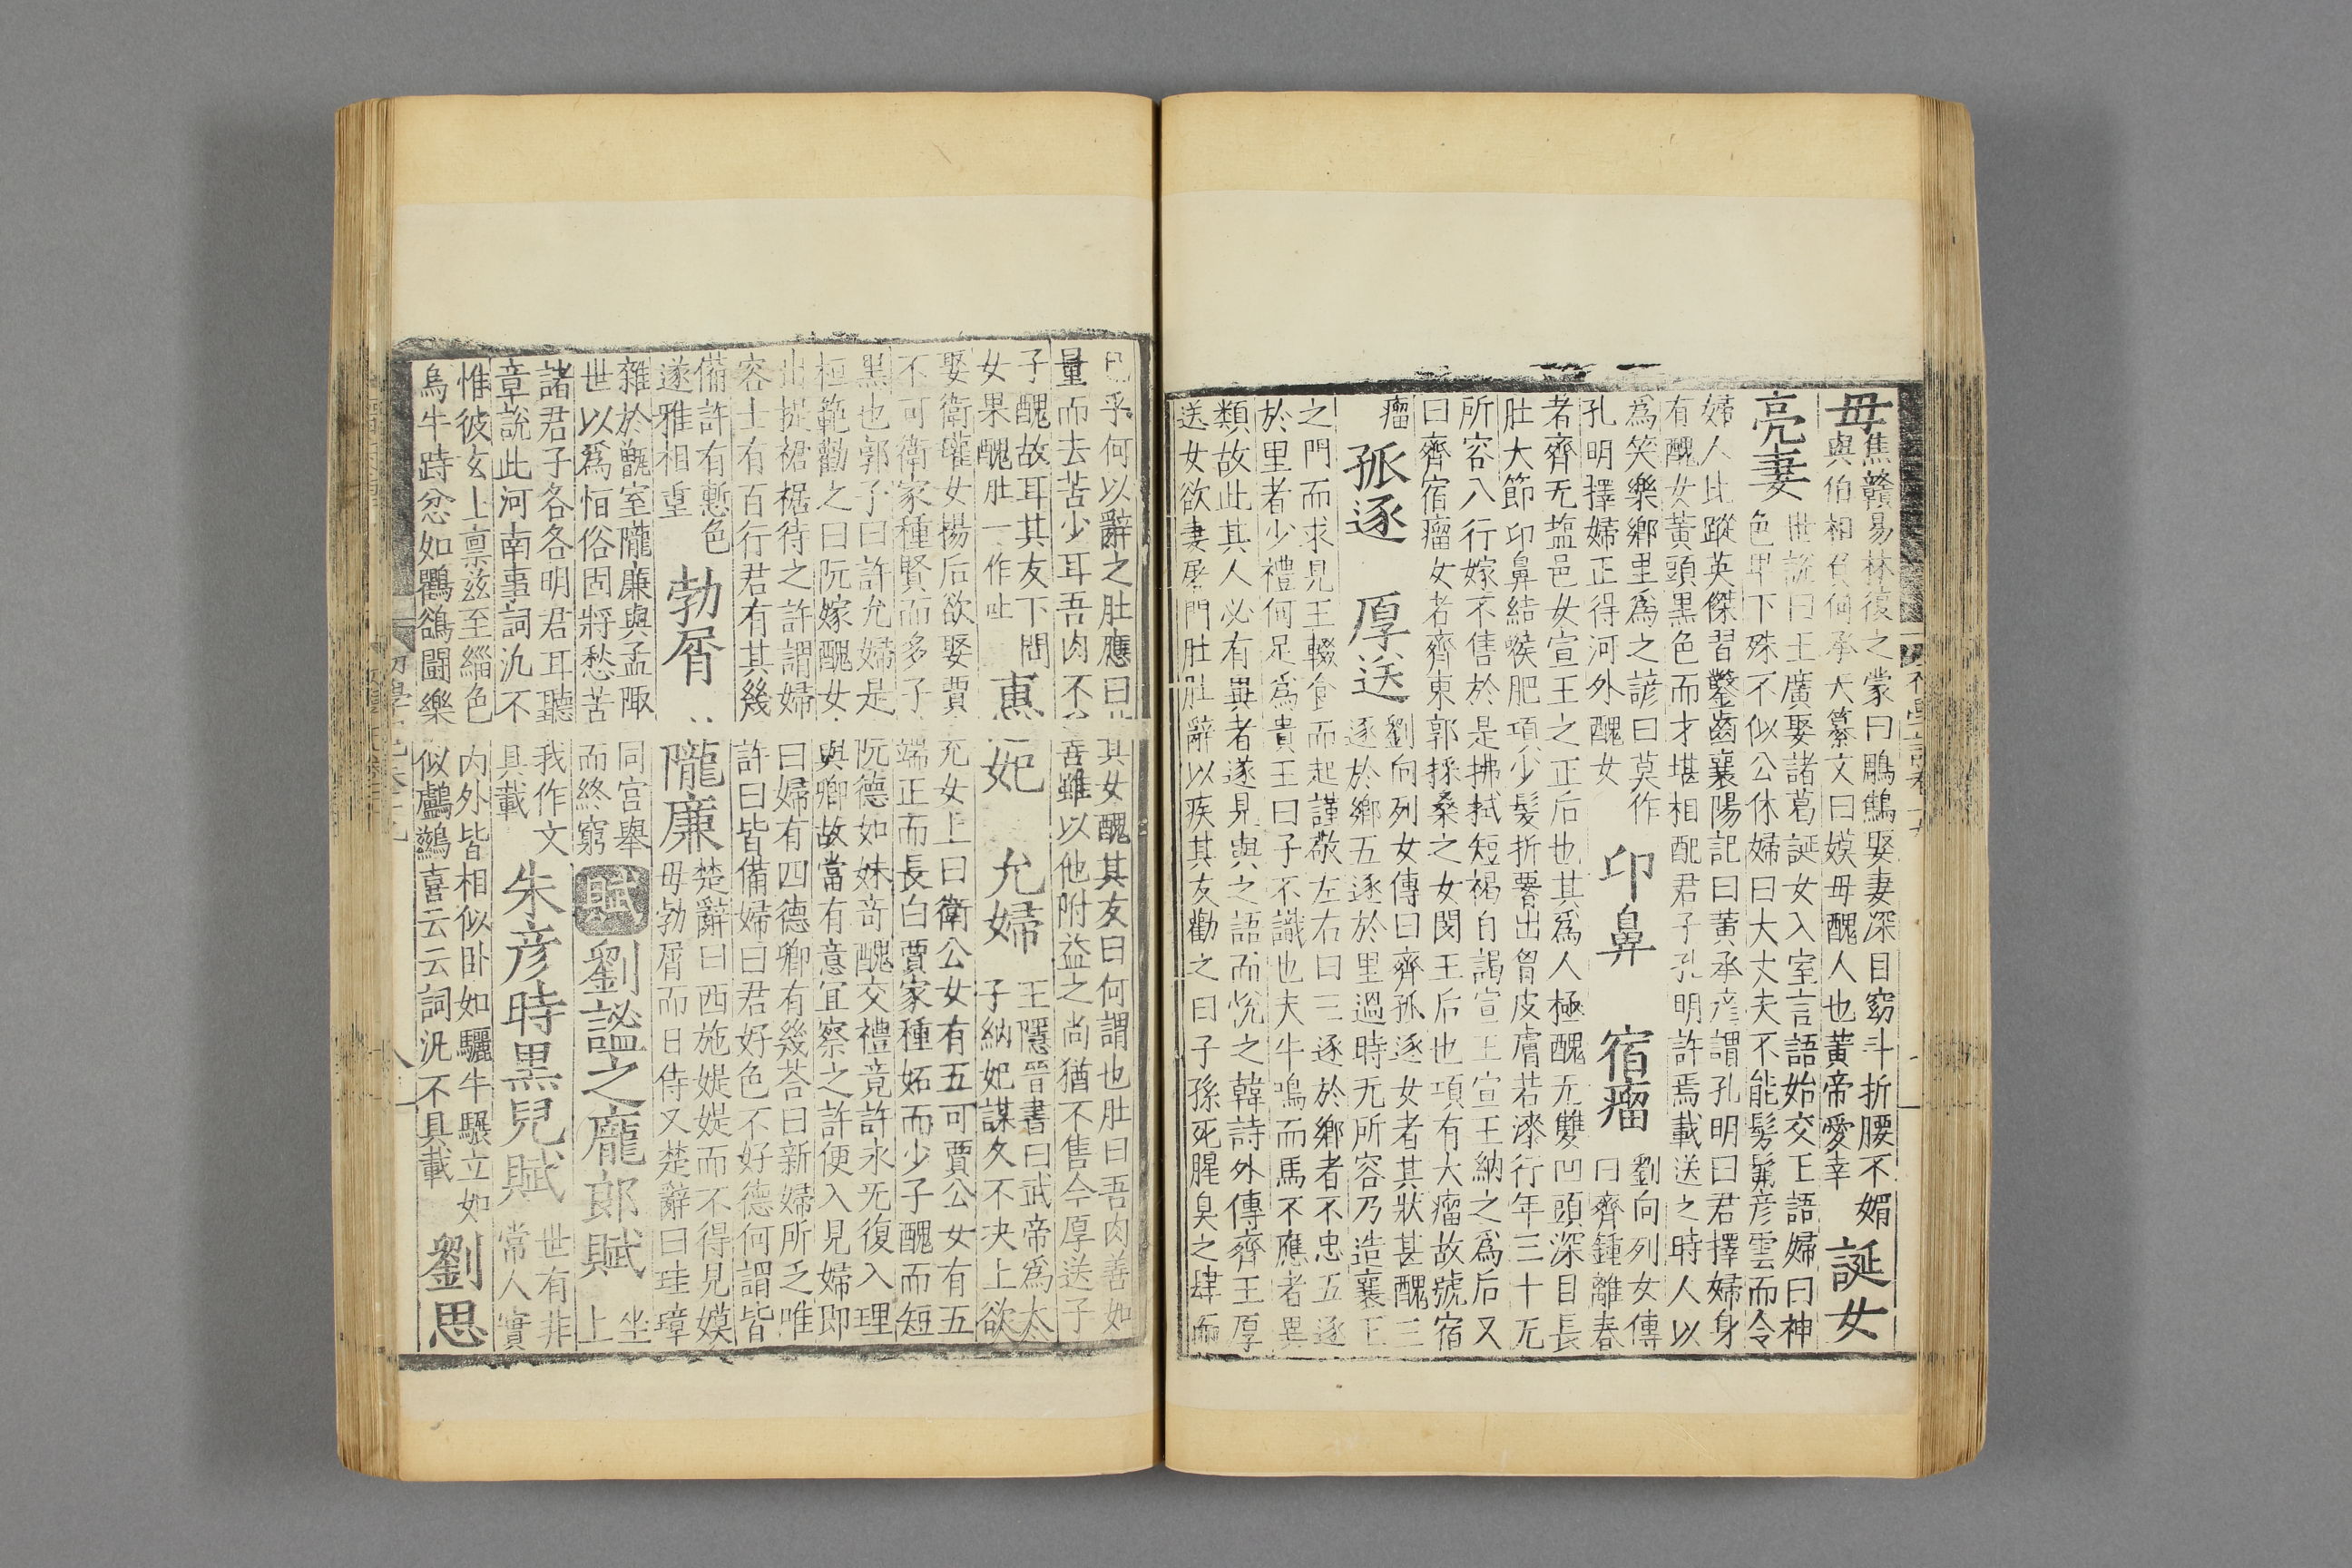 母
焦贛易林復之蒙曰鵰鷦娶妻深目窈斗折腰不媚
與伯相負何承天纂文曰嫫母醜人也黃帝愛幸
誕女
亮妻
世說曰王廣娶諸葛誕女入室言語始交王語婦曰神
色甲下殊不似公休婦曰大丈夫不能髣髴彦雲而令
婦人比蹤英傑習鑿齒襄陽記曰黃承彦謂孔明曰君擇婦身
有醜女黃頭黑色而才堪相配君子孔明許焉載送之時人以
為笑樂鄉里為之諺曰莫作
孔明擇婦正得河外醜女
印鼻 宿瘤
劉向列女傳
曰齊鍾離春
者齊无塩邑女宣王之正后也其為人極醜无雙凹頭深目長
肚大節印鼻結喉肥項少髮折出胷皮膚若漆行年三十无
所容八行嫁不售於是拂拭短褐自謁宣王宣王納之為后又
曰齊宿瘤女者齊東郭採桑之女閔王后也項有大瘤故號宿
瘤
孤逐 厚送
劉向列女傳曰齊孤逐女者其狀甚醜三
逐於鄉五逐於里過時无所容乃造襄王
之門而求見王輟食而起謹敬左右曰三逐於鄉者不忠五逐
於里者少禮何足為貴王曰子不識也夫牛鳴而馬不應者異
類故此其人必有異者遂見與之語而悅之韓詩外傳齊王厚
送女欲妻屠門肚肚辭以疾其友勸之曰子孫死腥臭之肆而
已乎何以辭之肚應曰其女醜其友曰何謂也肚曰吾肉善如
量而去苦少耳吾肉不善雖以他附益之尚猶不售今厚送子
子醜故耳其友下問
女果醜肚一作吐
惠妃 允婦
王隱晉書曰武帝為太
子納妃謀久不决上欲
娶衛瓘女楊后欲娶賈充女上曰衛公女有五可賈公女有五
不可衛家種賢而多子端正而長白賈家種妬而少子醜而短
黑也郭子曰許允婦是阮德如妹奇醜交禮竟許永无復入理
桓範勸之曰阮嫁醜女與卿故當有意宜察之許便入見婦即
出提裙裾待之許謂婦曰婦有四德卿有幾荅曰新婦所乏唯
容士有百行君有其幾許曰皆備婦曰君好色不好德何謂皆
備許有慙色
遂雅相重
勃屑 隴廉
楚辭曰西施媞媞而不得見嫫
母勃屑而日侍又楚辭曰珪璋
雜於甑室隴廉與孟陬同宮舉
世以為恒俗固將愁苦而終窮
賦
劉謐之龐郎賦
坐
上
諸君子各各明君耳聽我作文
章說此河南事詞汎不具載
朱彦時黑兒賦
世有非
常人實
惟彼玄上禀茲至緇色内外皆相似卧如驪牛驏立如
烏牛跱忿如鸜鵒鬪樂似鸕鶿喜云云詞汎不具載
劉思